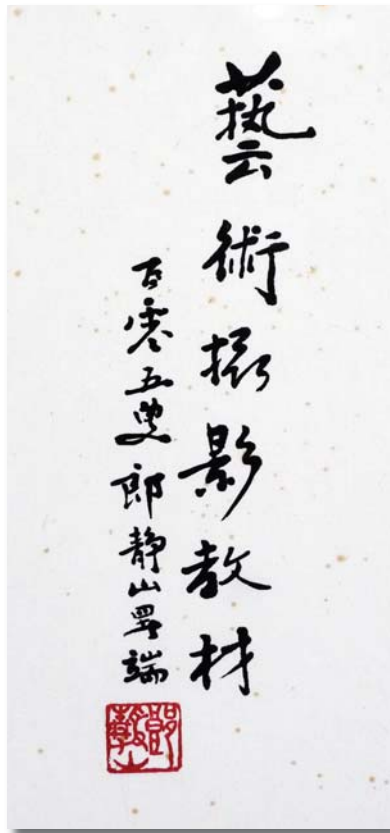 藝術攝影教材
百零五叟 郎静山署端
郎靜山